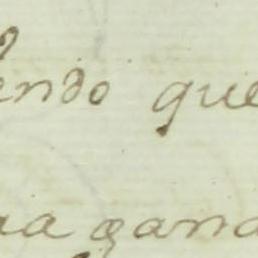 endo que
ra gana